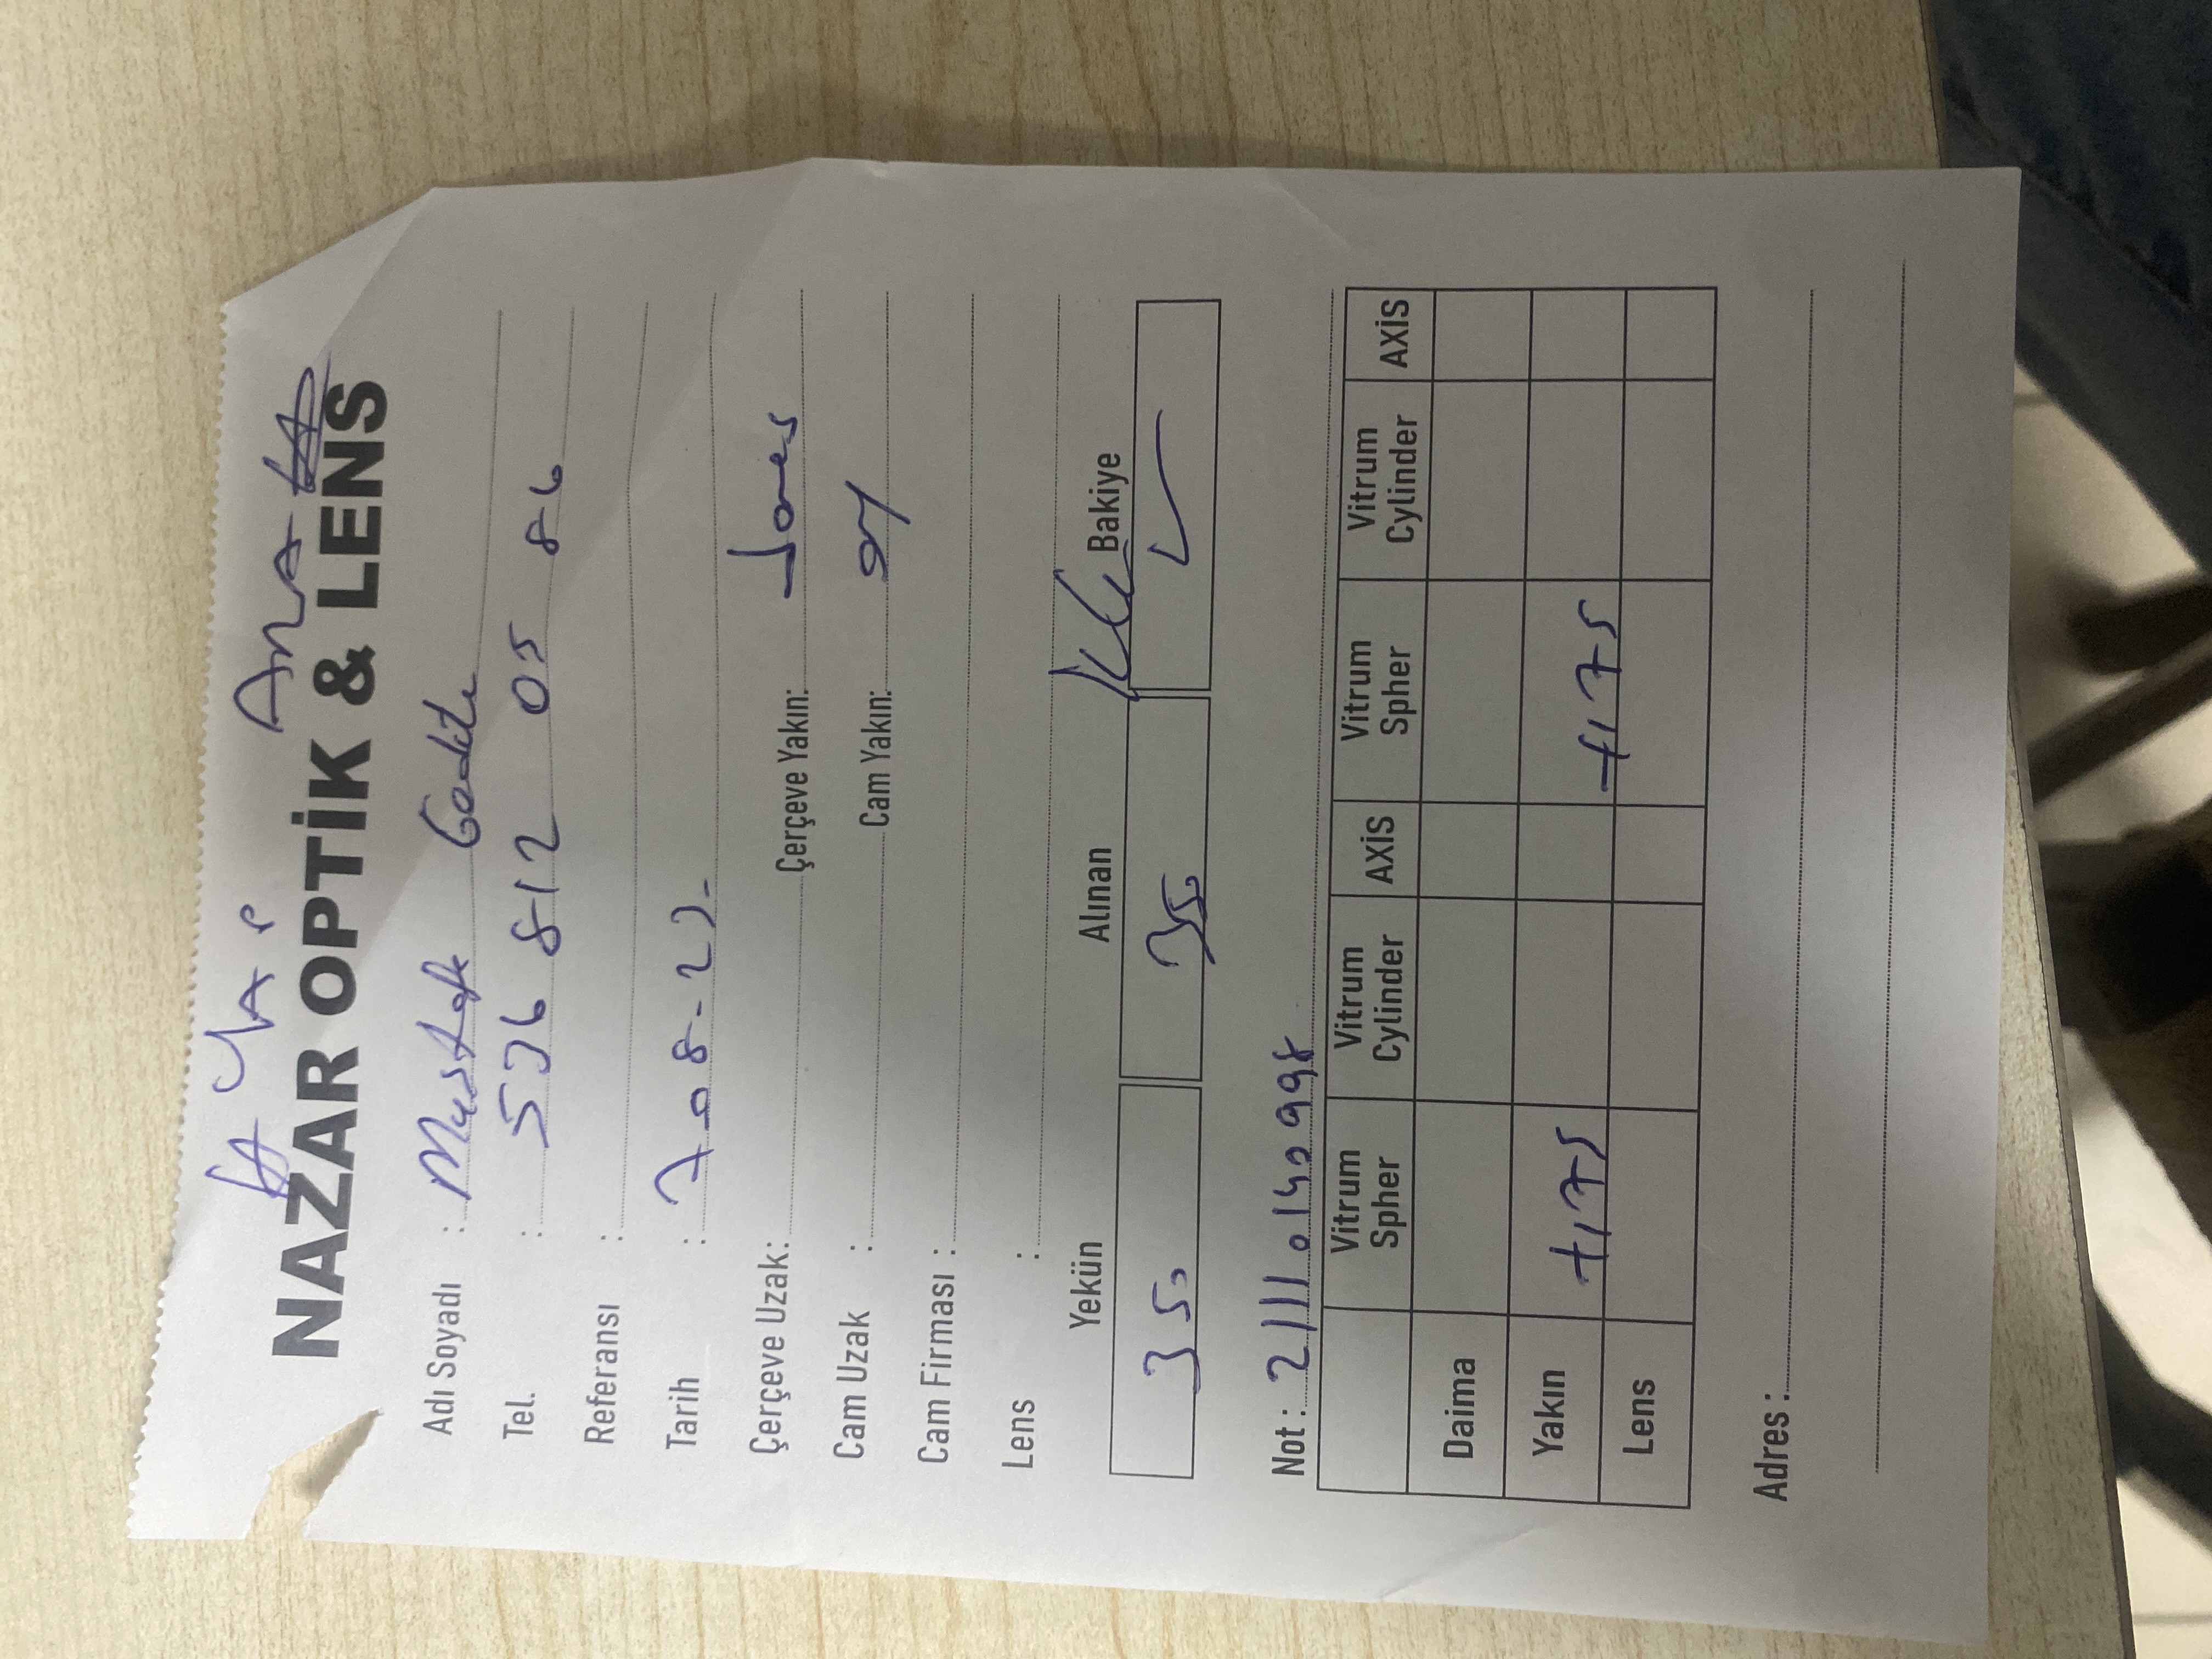 NAZAR OPTİK & LENS
Adı Soyadı : Mustafa
Tel. : 536 812 05 86
Referansı :
Tarih : 7-08-23-
Çerçeve Uzak: Çerçeve Yakın: Jones
Cam Uzak : Cam Yakın:
Cam Firması :
Lens :
Yekün Alınan Bakiye
350 350
Not : 21110140998
Vitrum Spher Vitrum Cylinder AXİS Vitrum Spher Vitrum Cylinder AXİS
Daima
Yakın +1,75 +1,75
Lens
Adres :